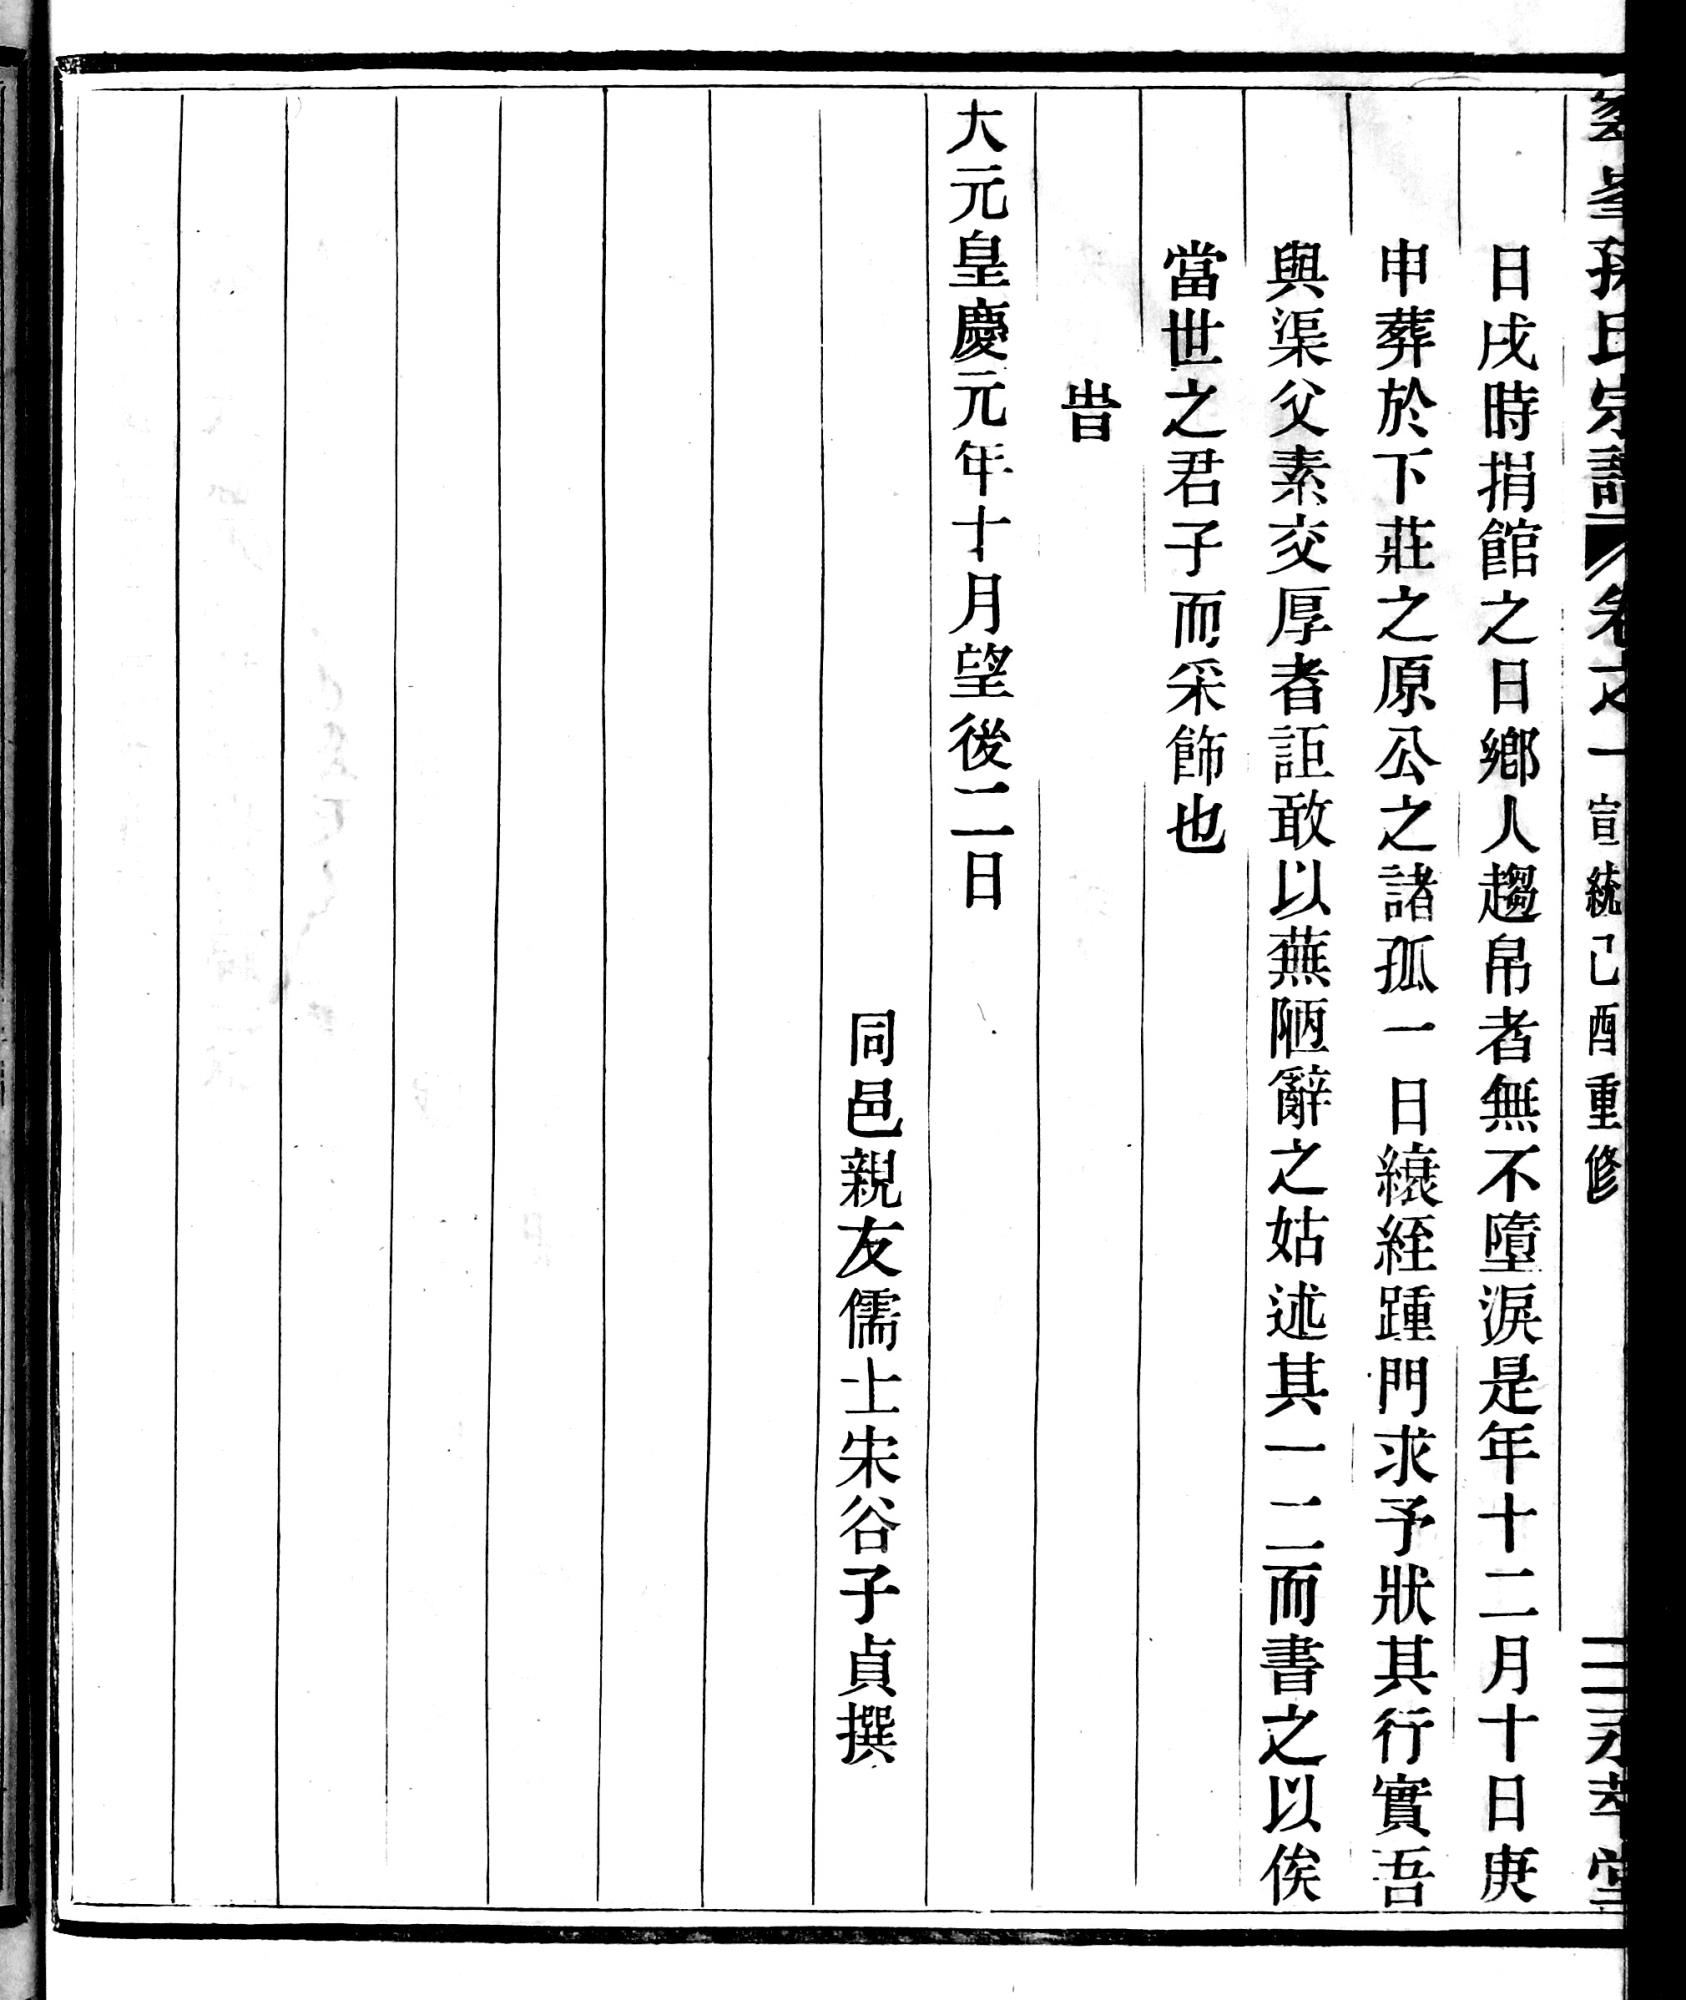 孫氏宗譜 卷之一 宣統己酉重修 堂
日戌時捐館之日鄉人趨帛者無不墮淚是年十二月十日庚
申葬於下莊之原公之諸孤一日縗絰踵門求予狀其行實吾
與渠父素交厚者詎敢以蕪陋辭之姑述其一二而書之以俟
當世之君子而采飾也
旹
大元皇慶元年十月望後二日
同邑親友儒士宋谷子貞撰